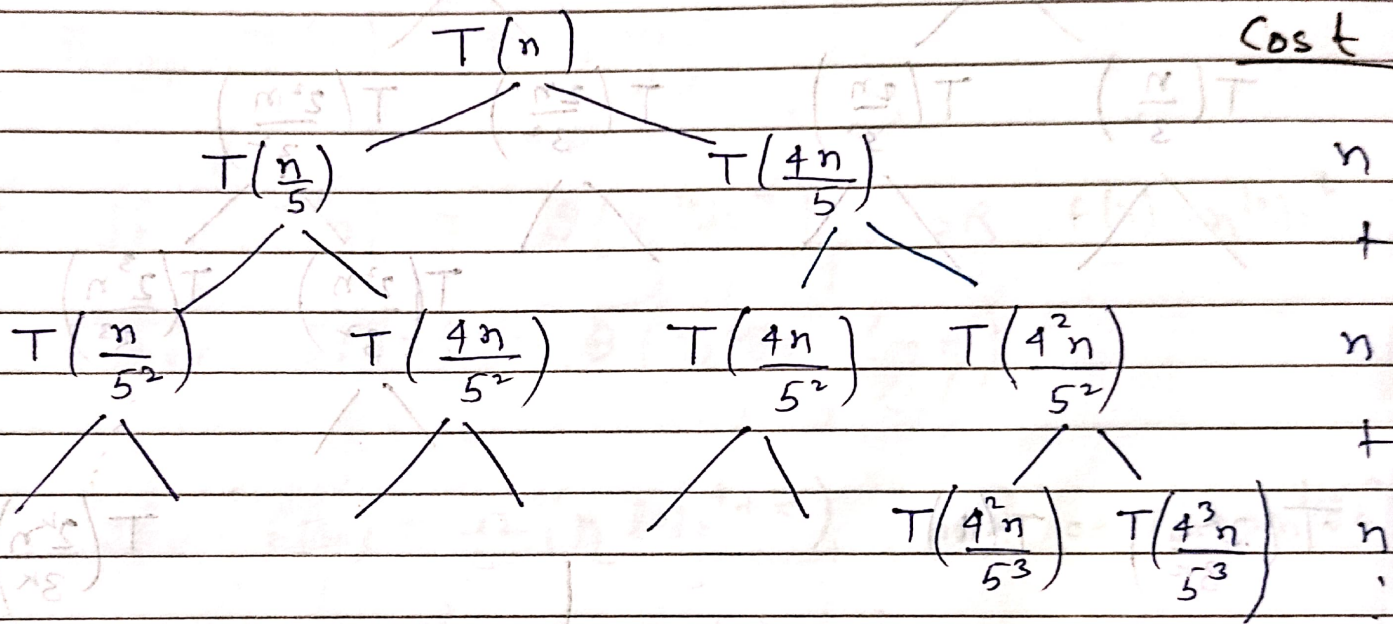 T(n) Cost
T(n/5) T(4n/5) n
+
T(n/5²) T(4n/5²) T(4n/5²) T(4²n/5²) n
+
T(4²n/5³) T(4³n/5³) n